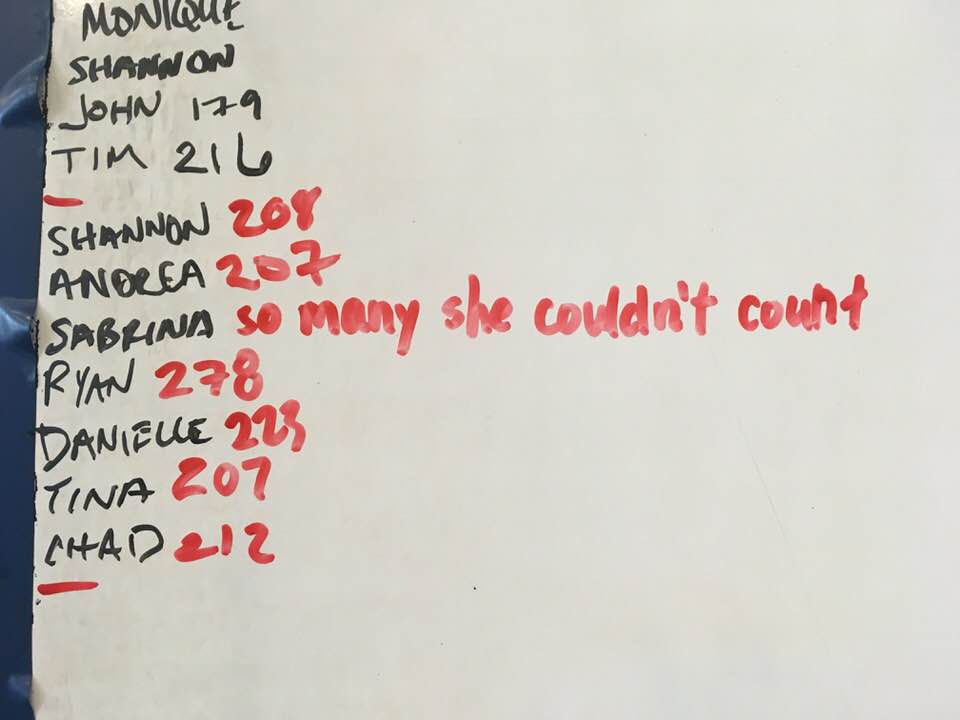 MONIQUE
SHANNON
JOHN 179
TIM 216
SHANNON 208
ANDREA 207
SABRINA so many she couldn't count
RYAN 278
DANIELLE 223
TINA 207
CHAD 212